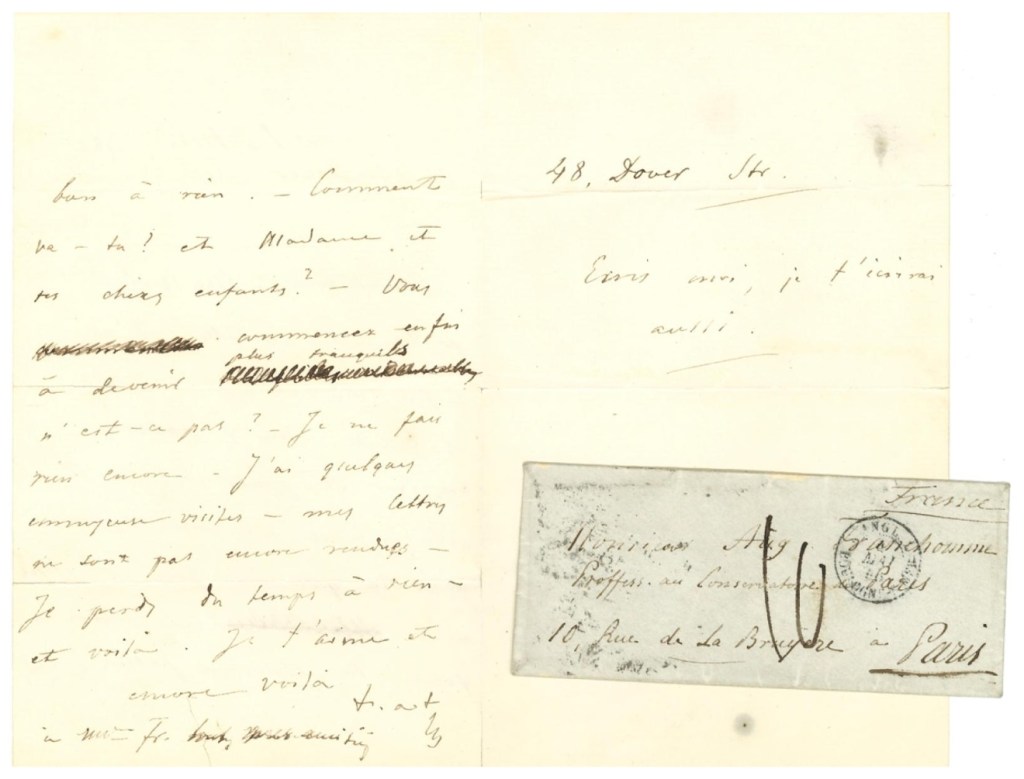 bon à rien. – Comment
va-tu? et Madame et
tes chers enfants? – Vous
commencez enfin
plus tranquils
à devenir
n'est-ce pas? – Je ne fais
rien encore – J'ai quelques
ennuyeuse visites – mes lettres
ne sont pas encore rendues –
Je perds du temps à rien –
et voilà. Je t'aime et
encore voilà
t. a t
à Mme Fr.
48, Dover Str.
Ecris moi, je t'écrirai
aussi.
France
Monsieur Aug Franchomme
Proffess. au Conservatoire de Paris
10, Rue de La Bruyère à
Paris